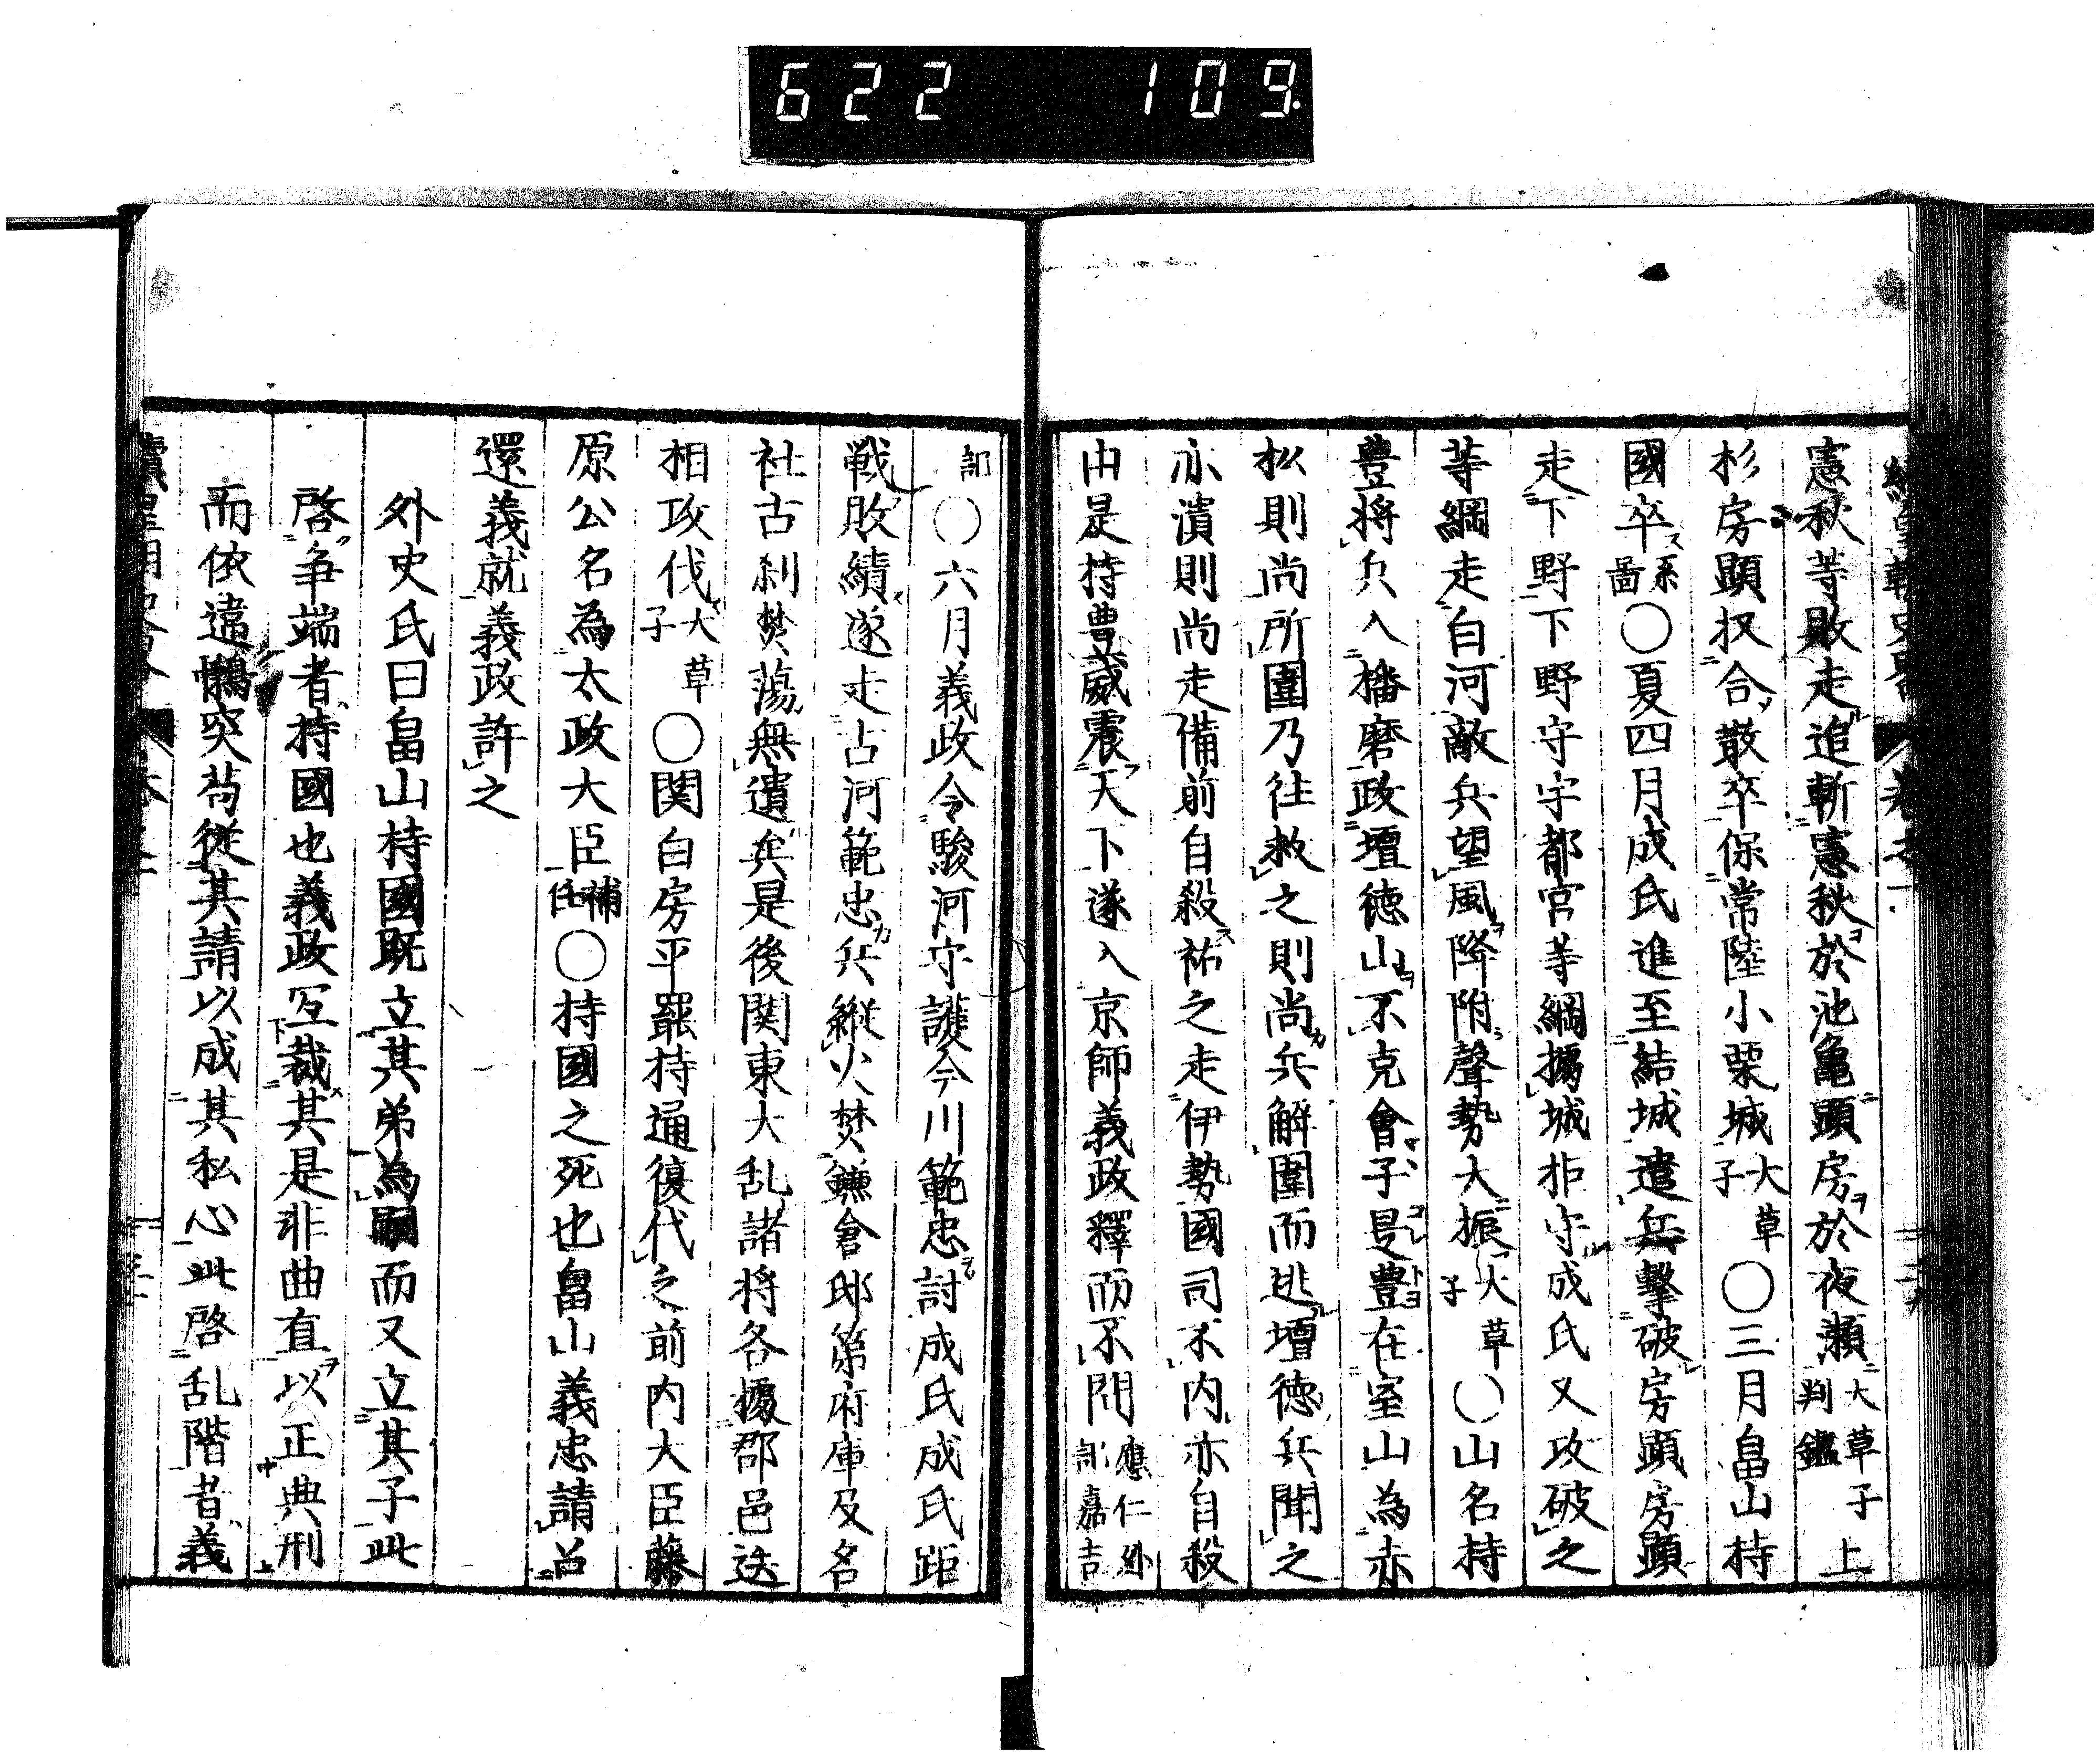 622 109
憲秋等敗走追斬憲秋於池亀顕房於夜瀬大草子判鑑上
杉房顕収合散卒保常陸小栗城大草子〇三月畠山持
國卒系圖〇夏四月成氏進至結城遣兵撃破房顕房顕
走下野下野守宇都宮等綱據城拒守成氏又攻破之
等綱走白河敵兵望風降附聲勢大振大草子〇山名持
豊将兵入播磨政壇徳山不克會子是豊在室山為赤
松則尚所圍乃往救之則尚兵解圍而逃壇徳兵聞之
亦潰則尚走備前自殺祐之走伊勢國司不内亦自殺
由是持豊威震天下遂入京師義政釋而不問應仁外記嘉吉
記〇六月義政令駿河守護今川範忠討成氏成氏距
戦敗績遂走古河範忠兵縦火焚鎌倉邸第府庫及名
社古刹焚蕩無遺矣是後関東大乱諸将各據郡邑迭
相攻伐大草子〇関白房平罷持通復代之前内大臣藤
原公名為太政大臣補任〇持國之死也畠山義忠請召
還義就義政許之
外史氏曰畠山持國既立其弟為嗣而又立其子此
啓争端者持國也義政宜裁其是非曲直以正典刑
而依違懶突苟從其請以成其私心此啓乱階者義